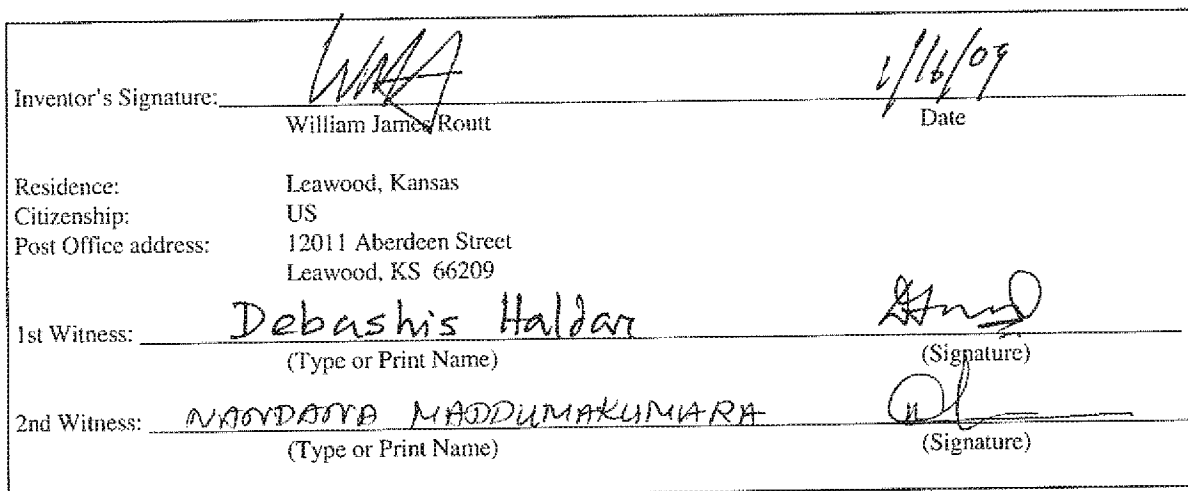 Inventor's Signature:
1/16/09
William James Routt
Date
Residence: Leawood, Kansas
Citizenship: US
Post Office address: 12011 Aberdeen Street
Leawood, KS 66209
1st Witness: Debashis Haldar
(Type or Print Name) (Signature)
2nd Witness: NANDANA MADDUMAKUMARA
(Type or Print Name) (Signature)